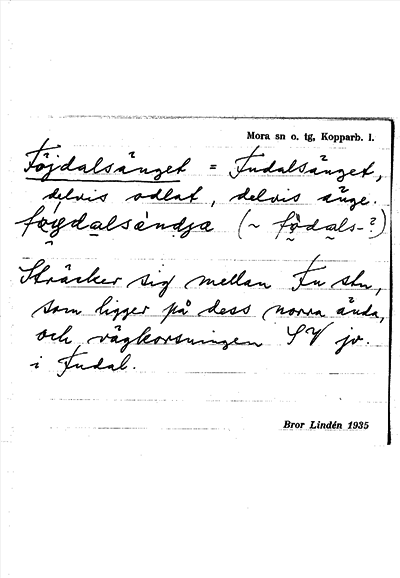 Mora sn o. tg, Kopparb. l.
Föjdalsänget = Fudalsänget,
delvis odlat, delvis änge.
föydalsàndja (~ födals-?)
Sträcker sig mellan Fu stn,
som ligger på dess norra ända,
och vägkorsningen SV jv.
i Fudal.
Bror Lindén 1935